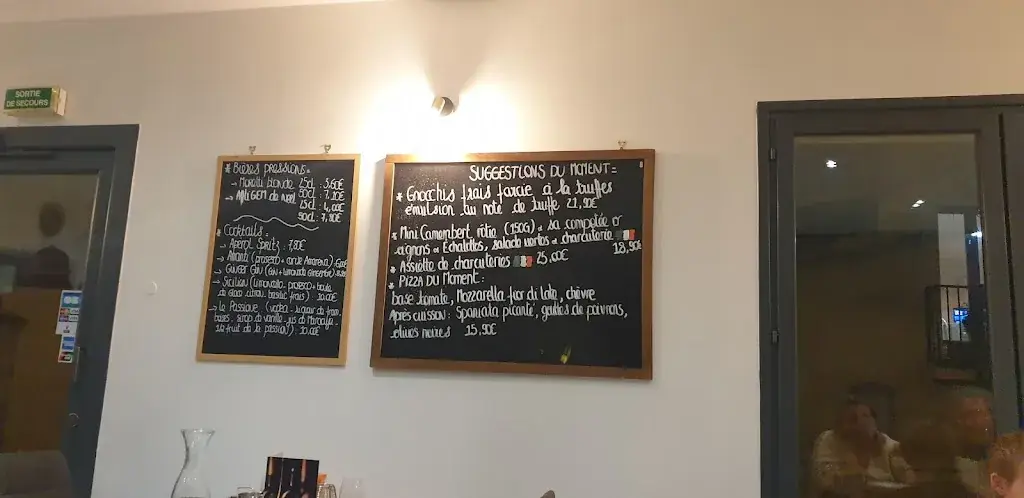 SORTIE
DE SECOURS
* Bières pressions =
→ Moretti blonde 25cl : 3,60€
50cl : 7,20€
→ Affligem de noel 25cl : 4,00€
50cl : 7,80€
* Cocktails :
→ Aperol Spritz : 7,80€
(prosecco +
→ Ginger Gin (Gin + limonade gingembre)
→ Sicilian (limoncello, prosecco + boule
de glace citron, basilic frais) : 10,00€
→ Le Passion (vodka - liqueur de fram
boises - sirop de vanille - jus de Maracuja -
fruit de la passion) : 10,00€
SUGGESTIONS DU MOMENT =
* Gnocchis frais farcie à la truffes
émulsion au note de truffe 21,90€
* Mini Camembert rôtie (150G) & sa compotée d'
oignons & Echalottes, salade vertes & charcuterie
18,90€
* Assiette de charcuteries 25,00€
* PIZZA DU Moment :
base tomate, Mozzarella fior di late, chèvre
Après cuisson : Spianata picante, gouttes de poivrons,
olives noires 15,90€